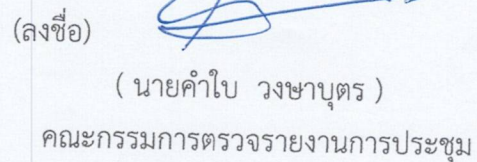 (ลงชื่อ)
( นายคำใบ วงษาบุตร )
คณะกรรมการตรวจรายงานการประชุม